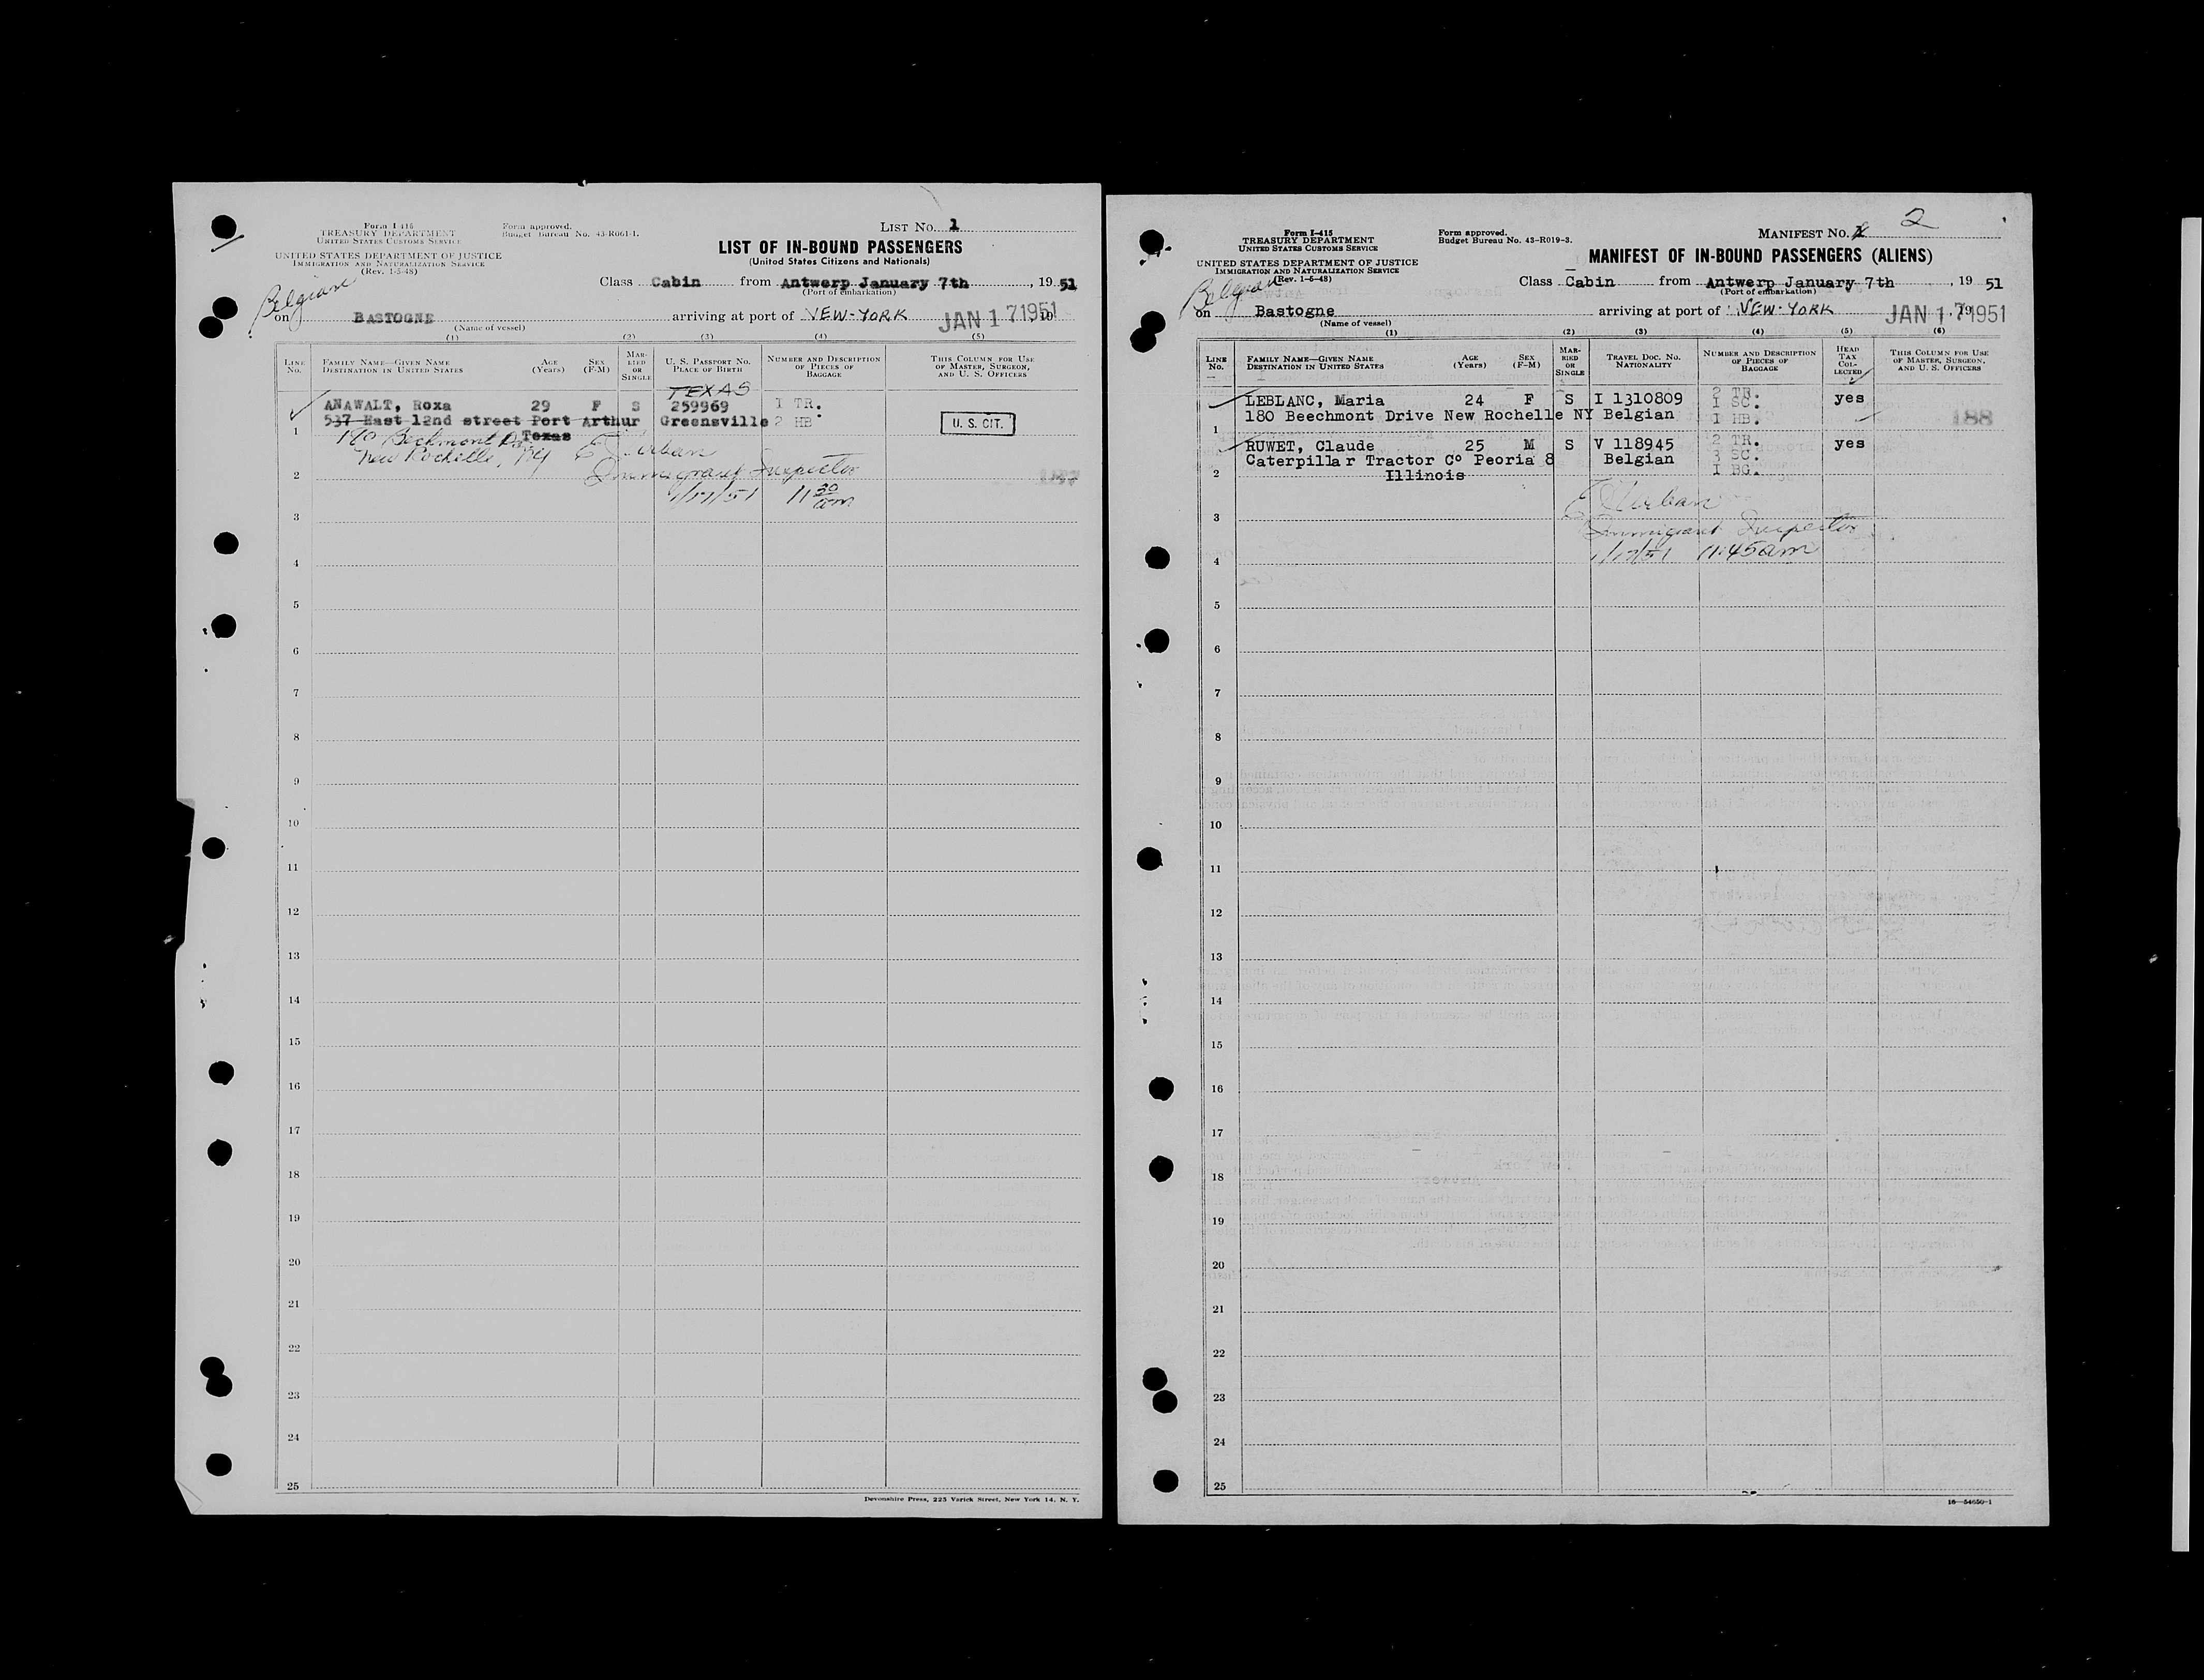 Form I-415
TREASURY DEPARTMENT
UNITED STATES CUSTOMS SERVICE
UNITED STATES DEPARTMENT OF JUSTICE
IMMIGRATION AND NATURALIZATION SERVICE
(Rev. 1-5-48)
Form approved.
Budget Bureau No. 43-R061-1.
LIST No. 1
LIST OF IN-BOUND PASSENGERS
(United States Citizens and Nationals)
Class Cabin from Antwerp January 7th, 19 51
(Port of embarkation)
Belgian
on BASTOGNE arriving at port of NEW-YORK JAN 17 1951, 19
(Name of vessel)
(1) (2) (3) (4) (5)
LINE No.
FAMILY NAME—GIVEN NAME
DESTINATION IN UNITED STATES
AGE (Years)
SEX (F-M)
MARRIED OR SINGLE
U. S. PASSPORT No.
PLACE OF BIRTH
NUMBER AND DESCRIPTION OF PIECES OF BAGGAGE
THIS COLUMN FOR USE OF MASTER, SURGEON, AND U. S. OFFICERS
TEXAS
ANAWALT, Roxa 29 F S 259969 1 TR.
537 East 12nd street Port Arthur Greensville 2 HB.
U. S. CIT.
1
Texas
170 Beckmont Dr.
New Rochelle, NY
E Urban
Immigrant Inspector
1/17/51 11 30 am
2
3
4
5
6
7
8
9
10
11
12
13
14
15
16
17
18
19
20
21
22
23
24
25
Devonshire Press, 225 Varick Street, New York 14, N. Y.
2
Form I-415
TREASURY DEPARTMENT
UNITED STATES CUSTOMS SERVICE
UNITED STATES DEPARTMENT OF JUSTICE
IMMIGRATION AND NATURALIZATION SERVICE
(Rev. 1-5-48)
Form approved.
Budget Bureau No. 43-R019-3.
MANIFEST No.
MANIFEST OF IN-BOUND PASSENGERS (ALIENS)
Class Cabin from Antwerp January 7th, 19 51
(Port of embarkation)
Belgian
on Bastogne arriving at port of NEW-YORK JAN 17 1951, 19
(Name of vessel)
(1) (2) (3) (4) (5) (6)
LINE No.
FAMILY NAME—GIVEN NAME
DESTINATION IN UNITED STATES
AGE (Years)
SEX (F-M)
MARRIED OR SINGLE
TRAVEL DOC. No.
NATIONALITY
NUMBER AND DESCRIPTION OF PIECES OF BAGGAGE
HEAD TAX COLLECTED
THIS COLUMN FOR USE OF MASTER, SURGEON, AND U. S. OFFICERS
2 TR.
LEBLANC, Maria 24 F S I 1310809 1 SC. yes
180 Beechmont Drive New Rochelle NY Belgian 1 HB. 188
1
RUWET, Claude 25 M S V 118945 2 TR. yes
Caterpillar Tractor C° Peoria 8 Belgian 3 SC.
2
Illinois 1 BG.
E Urban
3
Immigrant Inspector
1/17/51 11:45am
4
5
6
7
8
9
10
11
12
13
14
15
16
17
18
19
20
21
22
23
24
25
16—54650-1